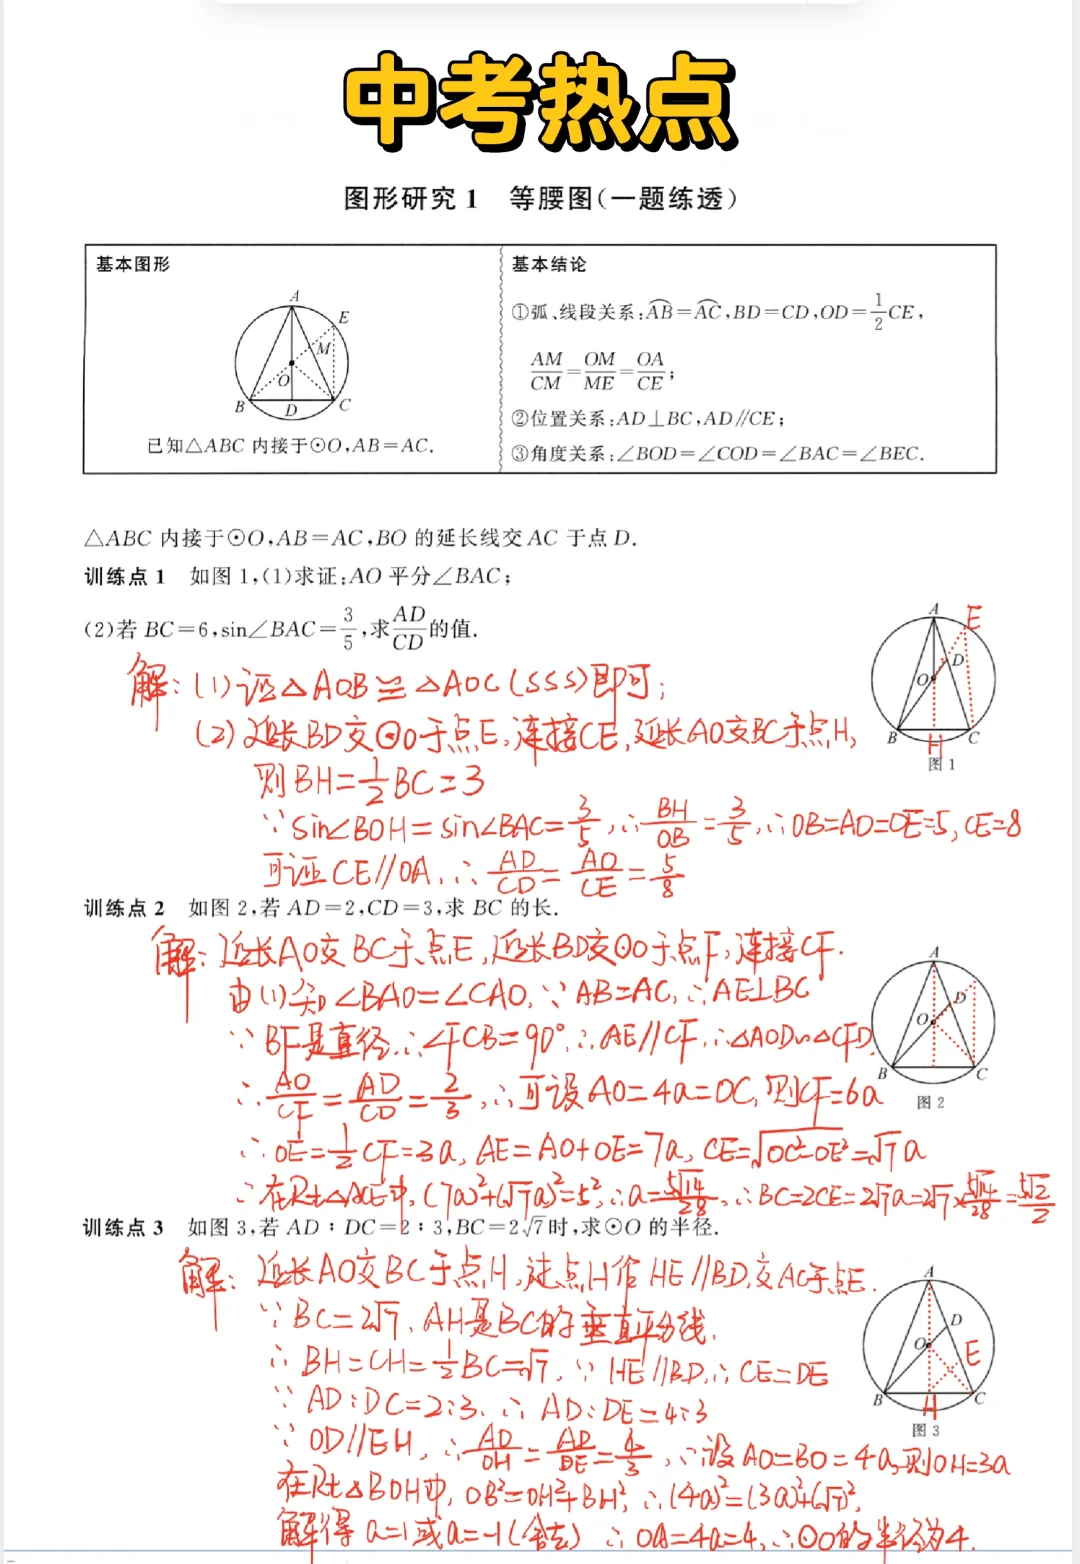 中考热点
图形研究1 等腰图(一题练透)
基本图形
A
E
M
O
B
D
C
已知△ABC 内接于⊙O,AB=AC.
基本结论
①弧、线段关系:AB⌒=AC⌒,BD=CD,OD=1/2CE,
AM/CM=OM/ME=OA/CE;
②位置关系:AD⊥BC,AD∥CE;
③角度关系:∠BOD=∠COD=∠BAC=∠BEC.
△ABC 内接于⊙O,AB=AC,BO 的延长线交 AC 于点 D.
训练点1 如图1,(1)求证:AO 平分∠BAC;
(2)若 BC=6,sin∠BAC=3/5,求AD/CD的值.
A
E
D
O
B
H
C
图1
解:(1)证△AOB≌△AOC(SSS)即可;
(2)延长BD交⊙O于点E,连接CE,延长AO交BC于点H,
则BH=1/2BC=3
∵sin∠BOH=sin∠BAC=3/5,∴BH/OB=3/5,∴OB=AO=OE=5,CE=8
可证CE∥OA,∴AD/CD=AO/CE=5/8
训练点2 如图2,若 AD=2,CD=3,求 BC 的长.
解:延长AO交BC于点E,延长BD交⊙O于点F,连接CF.
由(1)知∠BAO=∠CAO,∵AB=AC,∴AE⊥BC
∵BF是直径,∴∠FCB=90°,∴AE∥CF,∴△AOD∽△CFD,
∴AO/CF=AD/CD=2/3,∴可设AO=4a=OC,则CF=6a
∴OE=1/2CF=3a,AE=AO+OE=7a,CE=√OC²-OE²=√7a
∴在Rt△ACE中,(7a)²+(√7a)²=5²,∴a=5√14/28,∴BC=2CE=2√7a=2√7×5√14/28=5√2/2
A
D
O
B
C
图2
训练点3 如图3,若 AD∶DC=2∶3,BC=2√7时,求⊙O 的半径.
解:延长AO交BC于点H,过点H作HE∥BD,交AC于点E.
∵BC=2√7,AH是BC的垂直平分线,
∴BH=CH=1/2BC=√7,∵HE∥BD,∴CE=DE
∵AD:DC=2:3,∴AD:DE=4:3
∵OD∥EH,∴AO/OH=AD/DE=4/3,∴设AO=BO=4a,则OH=3a
在Rt△BOH中,OB²=OH²+BH²,∴(4a)²=(3a)²+(√7)²,
解得a=1或a=-1(舍去)∴OA=4a=4,∴⊙O的半径为4.
A
D
O
E
B
H
C
图3